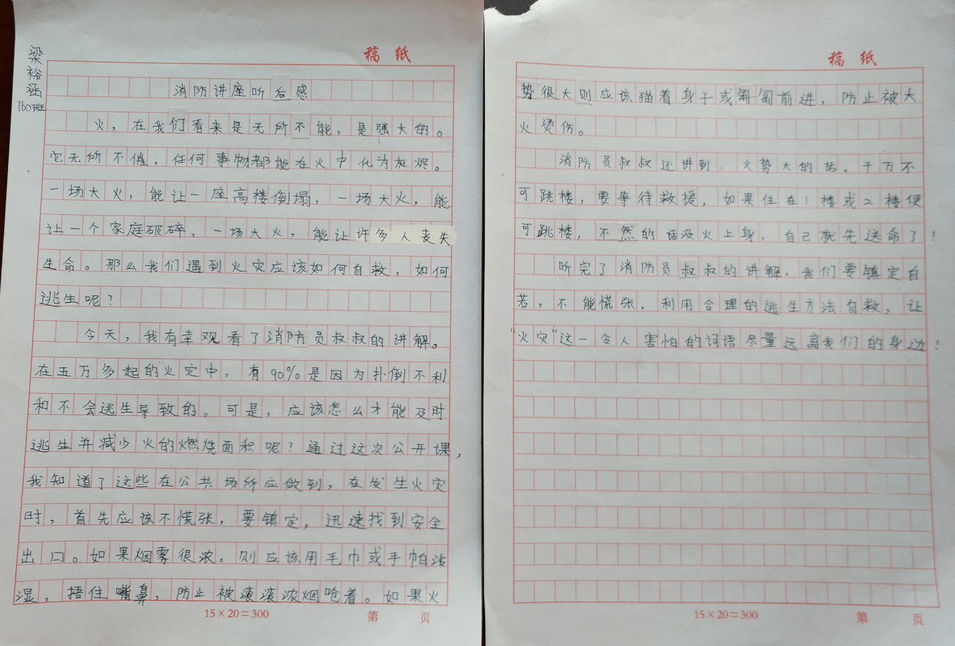 梁裕涵
160班
稿纸
消防讲座听后感
火，在我们看来是无所不能，是强大的。
它无所不催，任何事物都能在火中化为灰烬。
一场大火，能让一座高楼倒塌，一场大火，能
让一个家庭破碎，一场大火，能让许多人丧失
生命。那么我们遇到火灾应该如何自救，如何
逃生呢？
今天，我有幸观看了消防员叔叔的讲解。
在五万多起的火灾中，有90%是因为扑倒不利
和不会逃生导致的。可是，应该怎么才能及时
逃生并减少火的燃烧面积呢？通过这次公开课，
我知道了这些在公共场所应做到，在发生火灾
时，首先应该不慌张，要镇定，迅速找到安全
出口。如果烟雾很浓。则应该用毛巾或手帕沾
湿，捂住嘴鼻，防止被滚滚浓烟呛着。如果火
15×20=300
第 页
稿纸
势很大则应该猫着身子或匍匐前进，防止被大
火烫伤。
消防员叔叔还讲到：火势大的话，千万不
可跳楼，要等待救援，如果住在1楼或2楼便
可跳楼，不然的话没火上身，自己就先送命了！
听完了消防员叔叔的讲解，我们要镇定自
若，不能慌张，利用合理的逃生方法自救，让
“火灾”这一令人害怕的词语尽量远离我们的身边！
15×20=300
第 页